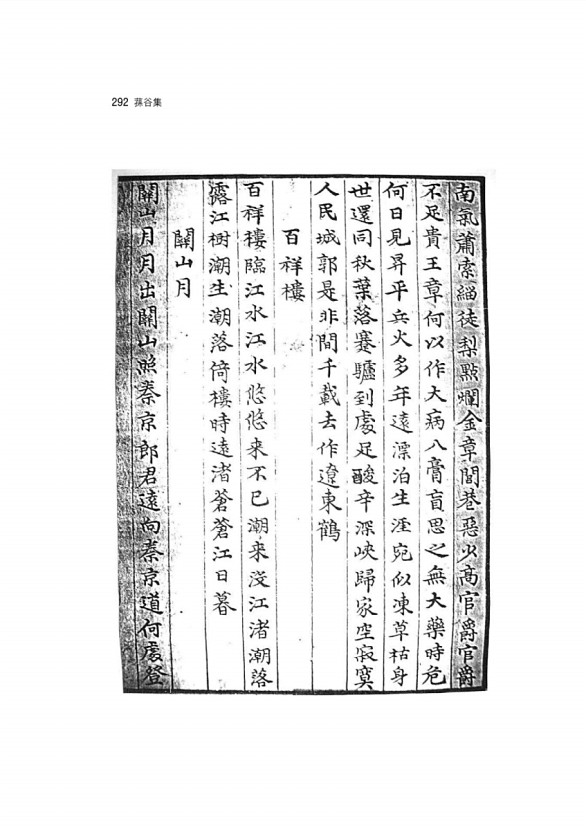 292 蓀谷集
南氣蕭索緇徒梨點爛金章閭巷惡少高官爵官爵
不足貴王章何以作大病八膏肓思之無大藥時危
何日見昇平兵火多年遠漂泊生涯宛似凍草枯身
世還同秋葉落蹇驢到處足酸辛深峽歸家空寂寞
人民城郭是非間千載去作遼東鶴
百祥樓
百祥樓臨江水江水悠悠來不已潮來沒江渚潮落
露江樹潮生潮落倚樓時遠渚蒼蒼江日暮
關山月
關山月月出關山照秦京郎君遠向秦京道何處登